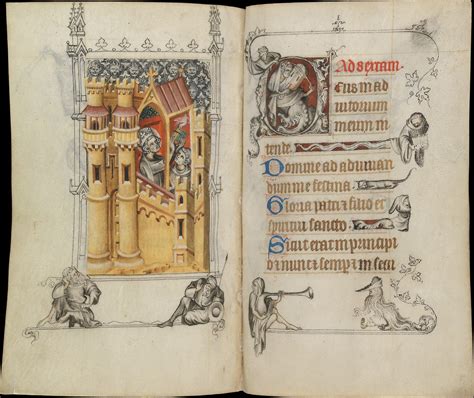 Ad sextam
Deus in ad
iutorium
meum in
tende.
Domine ad adiuuan
dum me festina.
Gloria patri et filio et
spiritui sancto
Sicut erat in principi
o et nunc et semper et in secu